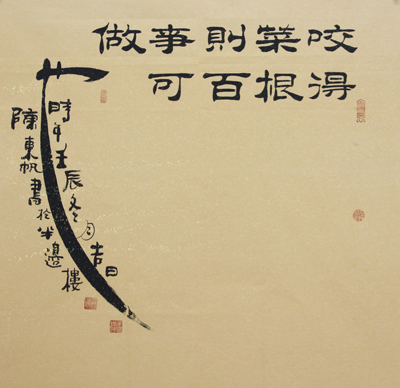 咬得
菜根
則百
事可
做
時年壬辰冬月吉日
陳東帆書於半邊樓